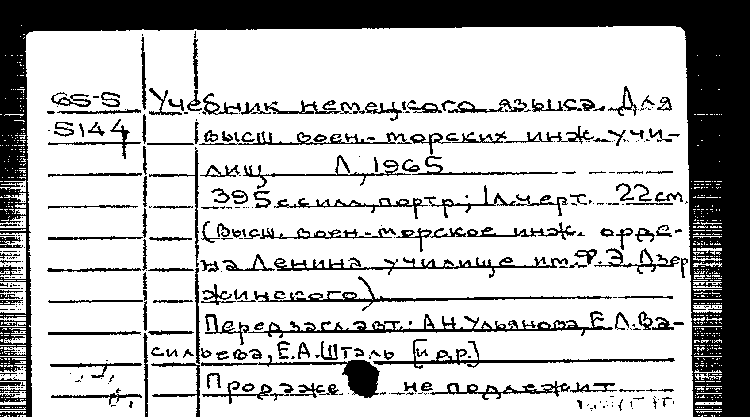 65-5 Учебник немецкого языка. Для
5144 высш. воен.-морских инж. учи-
лищ. Л., 1965
395 с. с илл., портр.; 1 л. черт. 22 см.
(Высш. воен.-морское инж. орде-
на Ленина училище им. Ф. Э. Дзер
жинского).
Перед загл. авт.: А.Н. Ульянова, Е.Л. Ва-
сильева, Е.А. Шталь [и др.]
Продаже не подлежит